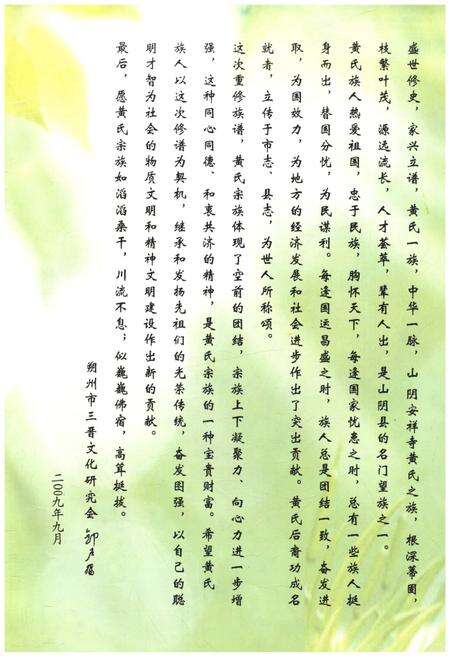 盛世修史，家兴立谱，黄氏一族，中华一脉，山阴安祥寺黄氏之族，根深蒂固，
枝繁叶茂，源远流长，人才荟萃，辈有人出，是山阴县的名门望族之一。
黄氏族人热爱祖国，忠于民族，胸怀天下，每逢国家忧患之时，总有一些族人挺
身而出，替国分忧，为民谋利。每逢国运昌盛之时，族人总是团结一致，奋发进
取，为国效力，为地方的经济发展和社会进步作出了突出贡献。黄氏后裔功成名
就者，立传于市志、县志，为世人所称颂。
这次重修族谱，黄氏宗族体现了空前的团结，宗族上下凝聚力、向心力进一步增
强，这种同心同德、和衷共济的精神，是黄氏宗族的一种宝贵财富。希望黄氏
族人以这次修谱为契机，继承和发扬先祖们的光荣传统，奋发图强，以自己的聪
明才智为社会的物质文明和精神文明建设作出新的贡献。
最后，愿黄氏宗族如滔滔桑干，川流不息；似巍巍佛宿，高耸挺拔。
朔州市三晋文化研究会
二〇〇九年九月